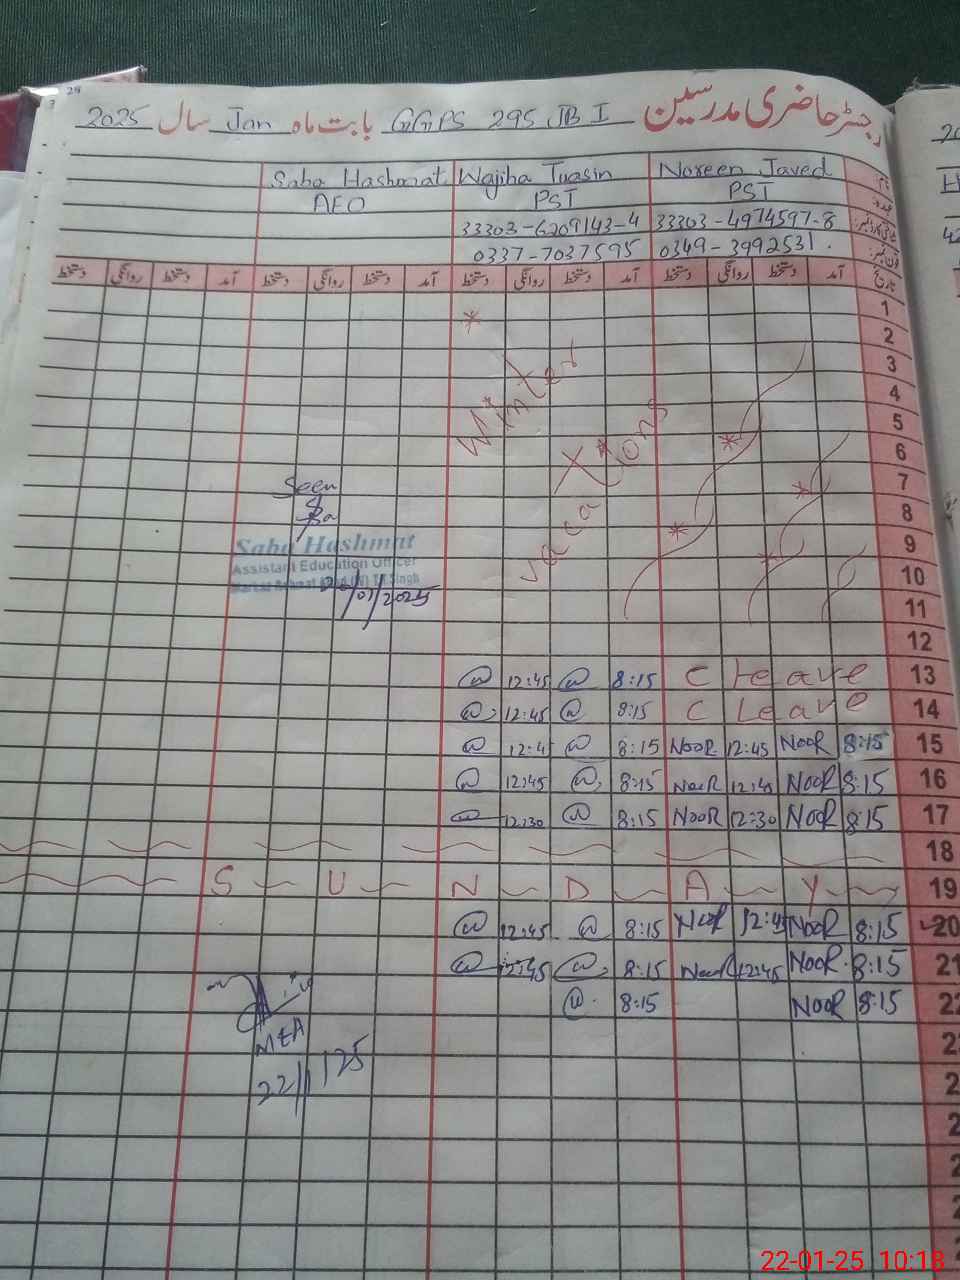 رجسٹر حاضری مدرسین GGPS 295 JB I بابت ماہ Jan سال 2025
Noreen Javed Wajiha Tuasin Saba Hashmat
PST PST AEO
33303-4974597-8 33303-6209143-4
0349-3992531. 0337-7037595
تاریخ آمد دستخط روانگی دستخط آمد دستخط روانگی دستخط آمد دستخط روانگی دستخط آمد دستخط روانگی دستخط
1
2
3
4
5
6
7
8
9
10
11
12
Winter
vacations
Seen
Saba Hashmat
Assistant Education Officer
22/01/2025
13 C leave 8:15 @ 12:45 @
14 C Leave 8:15 @ 12:45 @
15 8:15 NOOR 12:45 NOOR 8:15 @ 12:45 @
16 8:15 NOOR 12:45 NOOR 8:15 @ 12:45 @
17 8:15 NOOR 12:30 NOOR 8:15 @ 12:30 @
18
19 S U N D A Y
20 8:15 NOOR 12:45 NOOR 8:15 @ 12:45 @
21 8:15 NOOR 12:45 NOOR 8:15 @ 12:45 @
22 8:15 NOOR 8:15 @
MEA
22/1/25
22-01-25 10:18